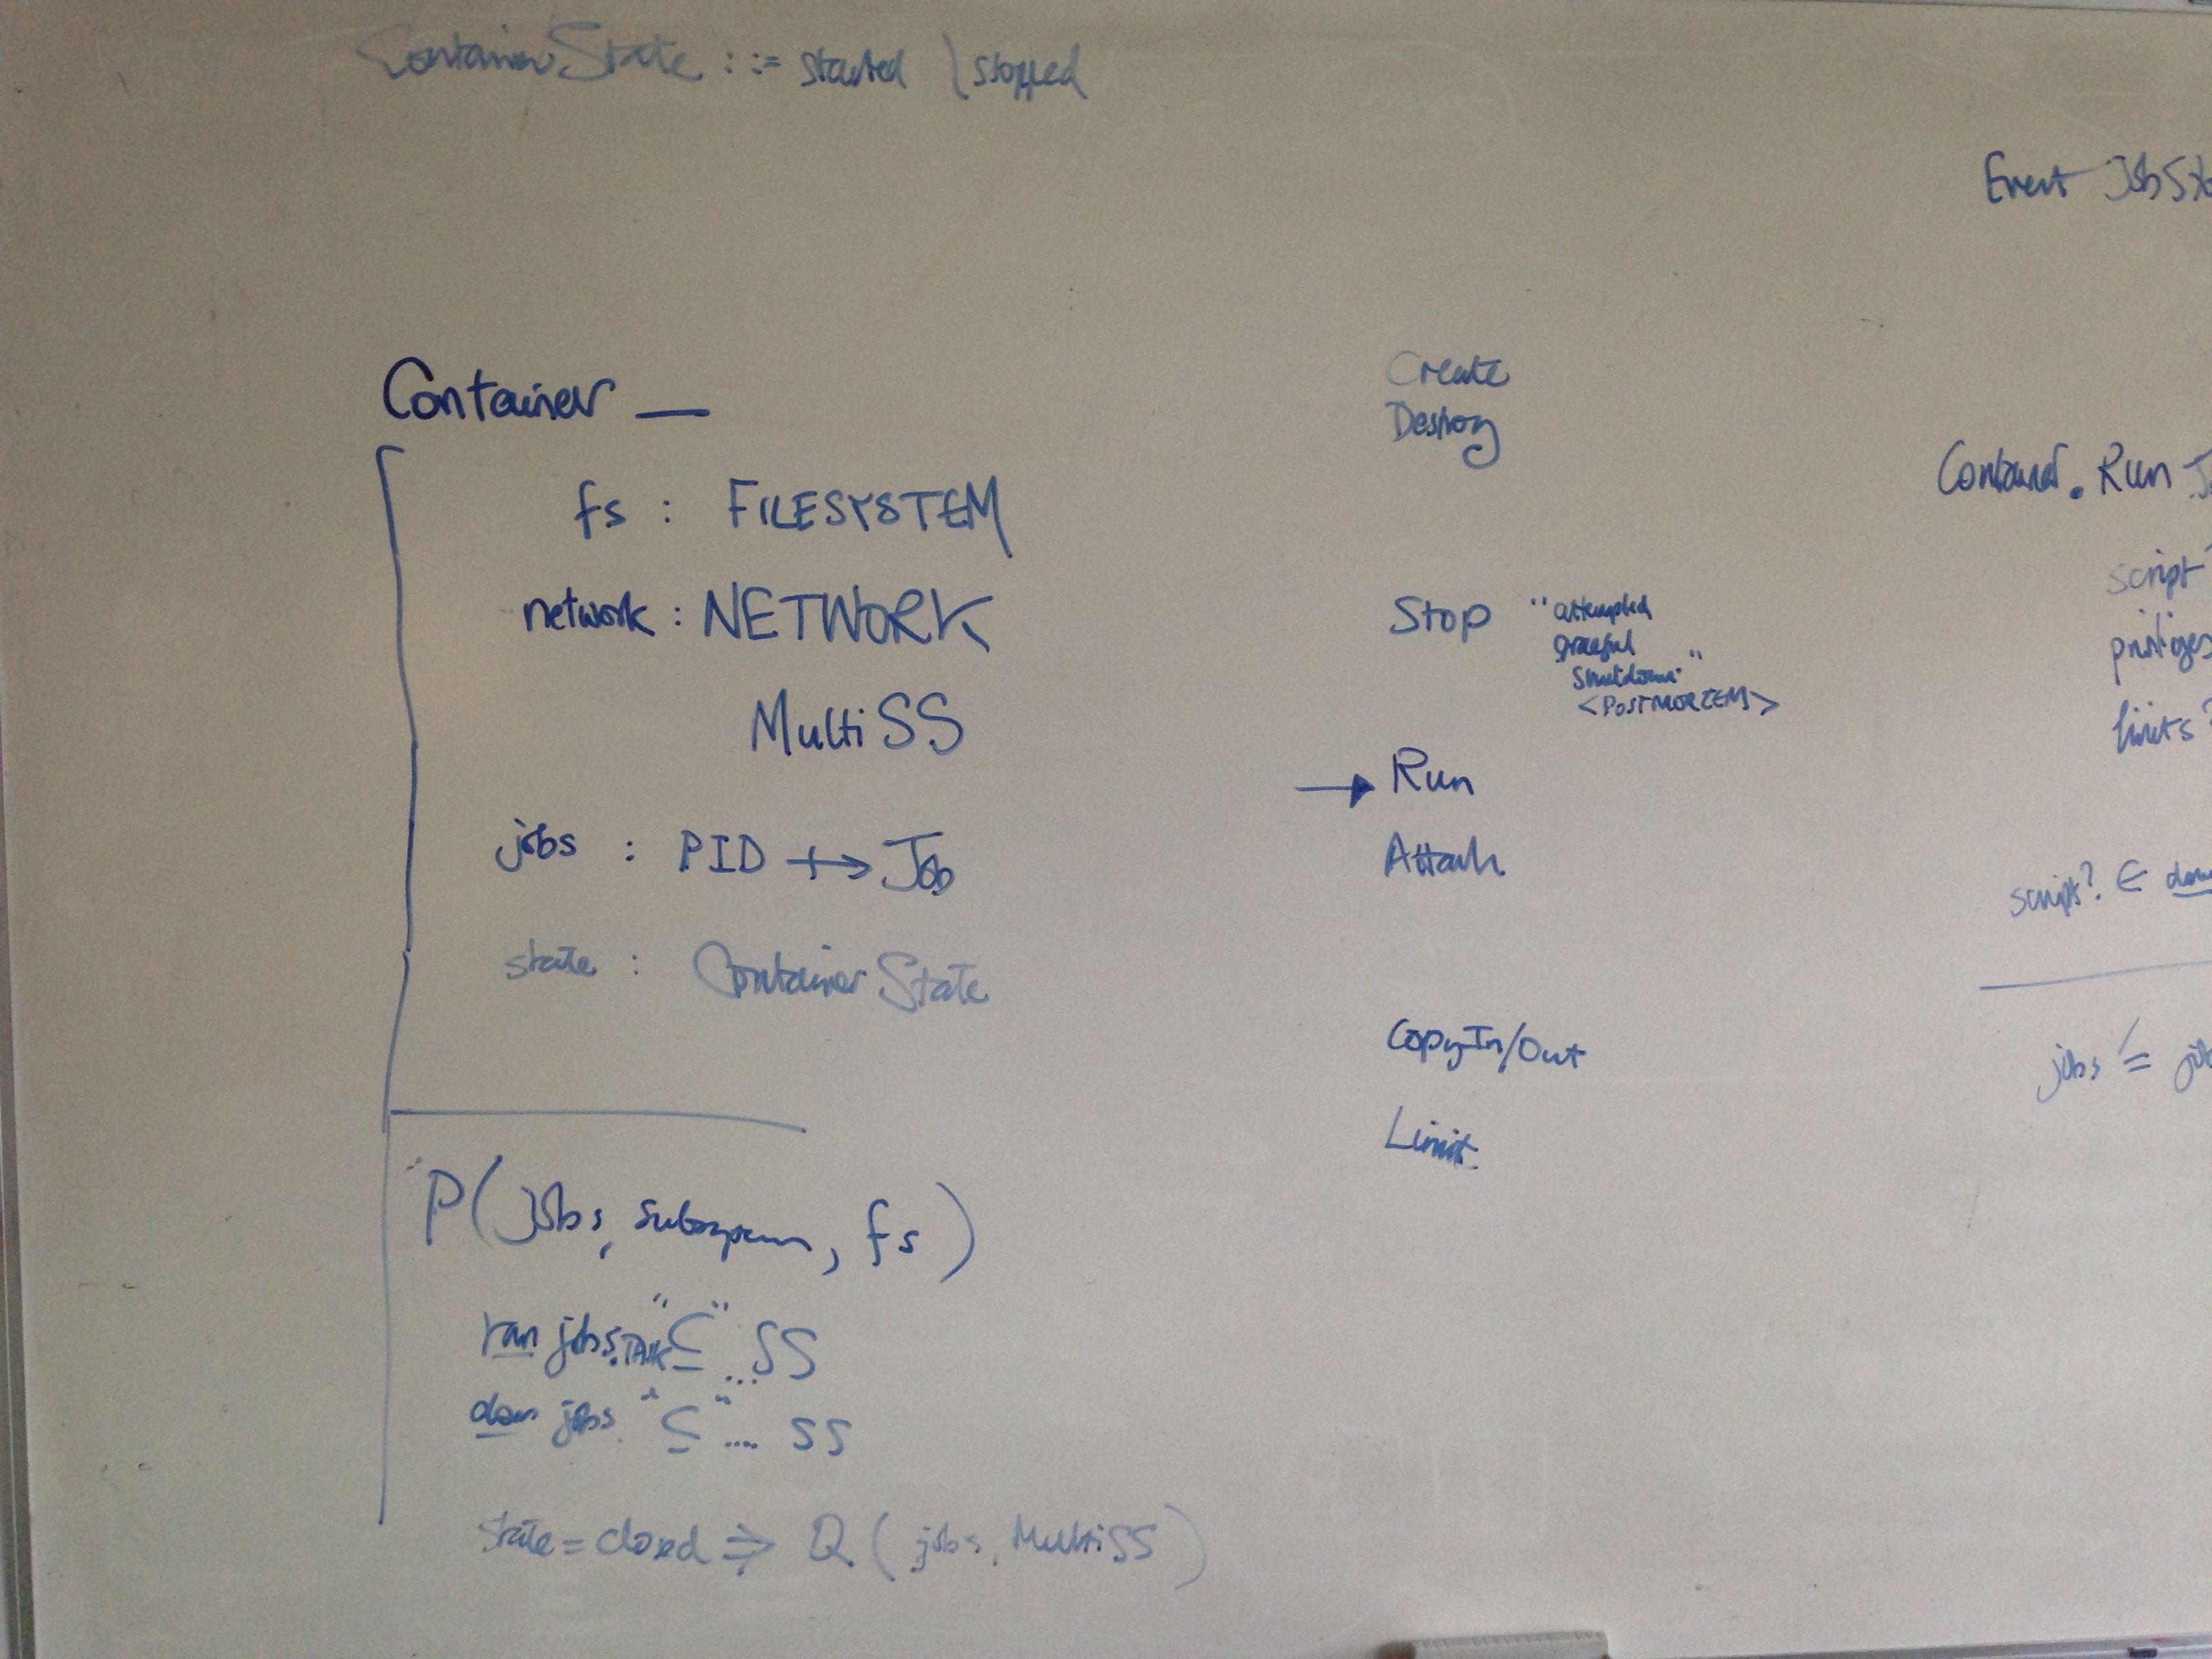 ContainerState ::= started | stopped
Container
fs : FILESYSTEM
network : NETWORK
MultiSS
jobs : PID ⇸ Job
state : ContainerState
P(jobs, subsystem, fs)
ran jobs.TASK "⊆" ... SS
dom jobs "⊆" .... SS
state = closed ⇒ Q (jobs, MultiSS)
Create
Destroy
Stop "attempted
graceful
shutdown"
<POSTMORTEM>
→ Run
Attach
CopyIn/Out
Limit
Event JobSt
Container.Run J
script?
limits?
script? ∈ dom
jobs' = job